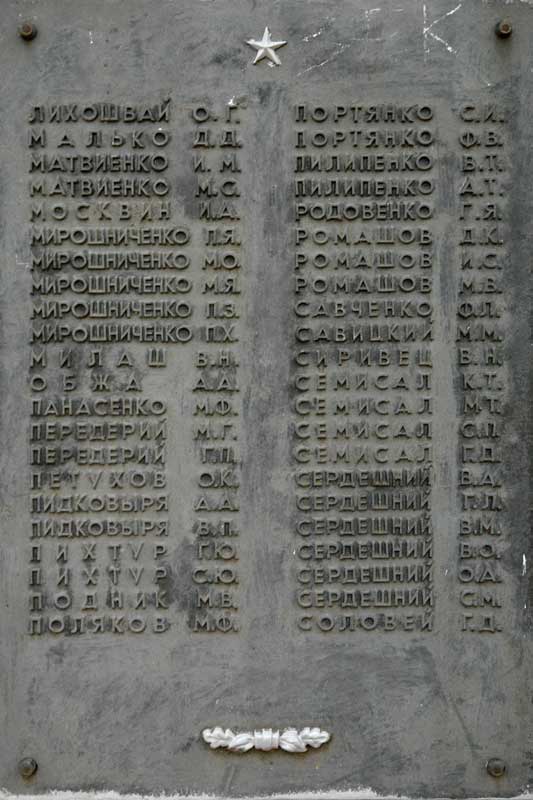 ЛИХОШВАЙ О.Г.
МАЛЬКО Д.Д.
МАТВИЕНКО И.М.
МАТВИЕНКО М.С.
МОСКВИН И.А.
МИРОШНИЧЕНКО П.Я.
МИРОШНИЧЕНКО М.О.
МИРОШНИЧЕНКО М.Я.
МИРОШНИЧЕНКО П.З.
МИРОШНИЧЕНКО П.Х.
МИЛАШ В.Н.
ОБЖА А.А.
ПАНАСЕНКО М.Ф.
ПЕРЕДЕРИЙ М.Г.
ПЕРЕДЕРИЙ Г.П.
ПЕТУХОВ О.К.
ПИДКОВЫРЯ А.А.
ПИДКОВЫРЯ В.П.
ПИХТУР Г.Ю.
ПИХТУР С.Ю.
ПОДНИК М.В.
ПОЛЯКОВ М.Ф.
ПОРТЯНКО С.И.
ПОРТЯНКО Ф.В.
ПИЛИПЕНКО В.Т.
ПИЛИПЕНКО А.Т.
РОДОВЕНКО Г.Я.
РОМАШОВ Д.К.
РОМАШОВ И.С.
РОМАШОВ М.В.
САВЧЕНКО Ф.Л.
САВИЦКИЙ М.М.
СИРИВЕЦ В.Н.
СЕМИСАЛ К.Т.
СЕМИСАЛ М.Т.
СЕМИСАЛ С.П.
СЕМИСАЛ Г.Д.
СЕРДЕШНИЙ В.А.
СЕРДЕШНИЙ Г.Л.
СЕРДЕШНИЙ В.М.
СЕРДЕШНИЙ В.О.
СЕРДЕШНИЙ О.А.
СЕРДЕШНИЙ С.М.
СОЛОВЕЙ Г.Д.